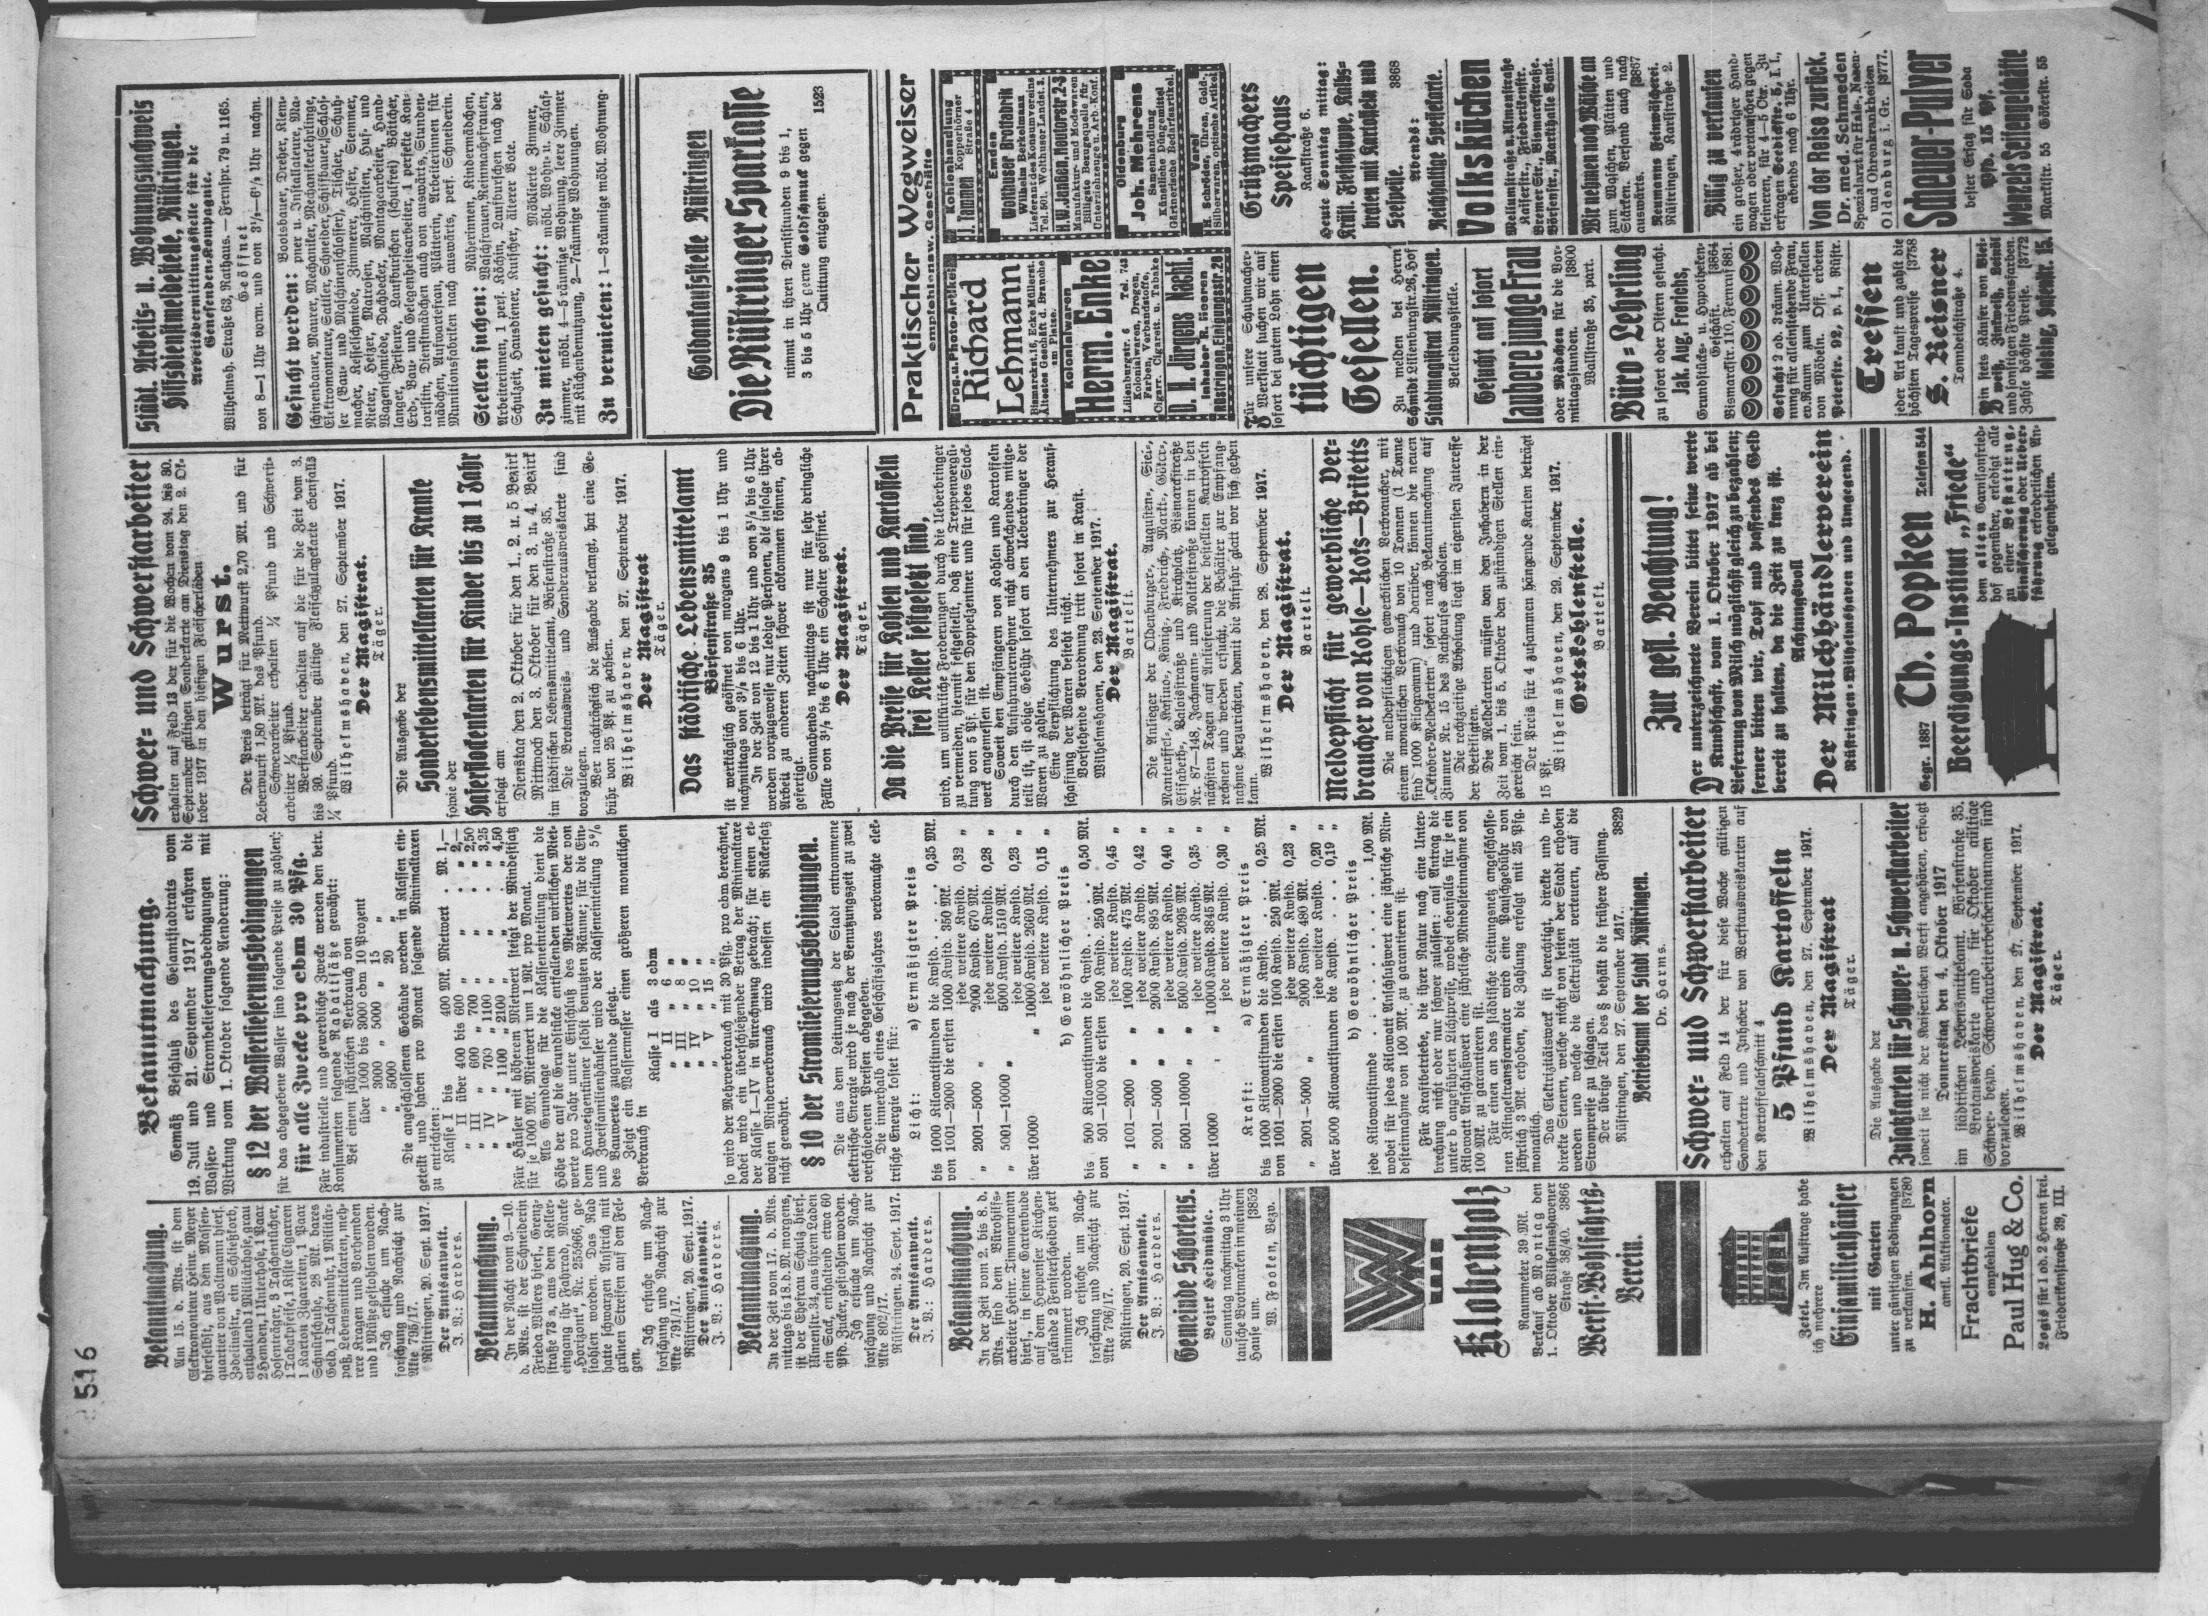 516
Bekanntmachung.
Am 15. d. Mts. ist dem
Elektromonteur Heinr. Meyer
hierselbst, aus dem Massen-
quartier von Woltmann hiers.
Zedeliusstr., ein Schließkorb,
enthaltend 1 Militärhose, grau
2 Hemden, 1 Unterhose, 1 Paar
Hosenträger, 3 Taschentücher,
1 Tabakpfeife, 1 Kiste Cigarren
1 Karton Zigaretten, 1 Paar
Schnürschuhe, 28 Mk. bares
Geld, 1 Taschenuhr, 1 Militär-
paß, Lebensmittelkarten, meh-
rere Kragen und Vorhemden
und 1 Mütze gestohlen worden.
Ich ersuche um Nach-
forschung und Nachricht zur
Akte 795/17.
Rüstringen, 20. Sept. 1917.
Der Amtsanwalt.
J. V.: Harders.
Bekanntmachung.
In der Nacht vom 9.—10.
d. Mts. ist der Schneiderin
Frieda Willers hiers., Grenz-
straße 73 a, aus dem Keller
eingang ihr Fahrrad, Marke
„Horizont“, Nr. 255966, ge-
stohlen worden. Das Rad
hatte schwarzen Anstrich mit
grünen Streifen auf den Fel-
gen.
Ich ersuche um Nach-
forschung und Nachricht zur
Akte 791/17.
Rüstringen, 20. Sept. 1917.
Der Amtsanwalt.
J. V.: Harders.
Bekanntmachung.
In der Zeit vom 17. d. Mts.
mittags bis 18. d. M. morgens,
ist der Ehefrau Schulz hiers.
Ulmenstr. 34, aus ihrem Laden
ein Sack, enthaltend etwa 60
Pfd. Zucker, gestohlen worden.
Ich ersuche um Nach-
forschung und Nachricht zur
Akte 802/17.
Rüstringen, 24. Sept. 1917.
Der Amtsanwalt.
J. V.: Harders.
Bekanntmachung.
In der Zeit vom 2. bis 8. d.
Mts. sind dem Bürohilfs-
arbeiter Heinr. Timmermann
hiers., in seiner Gartenbude
auf dem Heppenser Kirchen-
gelände 2 Fensterscheiben zert
trümmert worden.
Ich ersuche um Nach-
forschung und Nachricht zur
Akte 796/17.
Rüstringen, 20. Sept. 1917.
Der Amtsanwalt.
J. V.: Harders.
Gemeinde Schortens.
Bezirk Heidmühle.
Sonntag nachmittag 3 Uhr
tausche Brotmarken in meinem
Hause um. [3852
W. Fooken, Bezv.
Klobenholz
Raummeter 39 Mk.
Verkauf ab Montag den
1. Oktober Wilhelmshavener
Straße 38/40. 3866
Werft-Wohlfahrts-
Verein.
Zetel. Im Auftrage habe
ich mehrere
Einfamilienhäuser
mit Garten
unter günstigen Bedingungen
zu verkaufen. [3780
H. Ahlhorn
amtl. Auktionator.
Frachtbriefe
empfehlen
Paul Hug & Co.
Logis für 1 od. 2 Herrn frei.
Friederikenstraße 39, III.
Bekanntmachung.
Gemäß Beschluß des Gesamtstadtrats vom
19. Juli und 21. September 1917 erfahren die
Wasser- und Strombelieferungsbedingungen mit
Wirkung vom 1. Oktober folgende Aenderung:
§ 12 der Wasserlieferungsbedingungen
für das abgegebene Wasser sind folgende Preise zu zahlen:
für alle Zwecke pro cbm 30 Pfg.
Für industrielle und gewerbliche Zwecke werden den betr.
Konsumenten folgende Rabattsätze gewährt:
Bei einem jährlichen Verbrauch von
über 1000 bis 3000 cbm 10 Prozent
„ 3000 „ 5000 „ 15 „
„ 5000 „ 20 „
Die angeschlossenen Gebäude werden in Klassen ein-
geteilt und haben pro Monat folgende Minimaltaxen
zu entrichten:
Klasse I bis 400 Mk. Mietwert . M. 1,—
„ II über 400 bis 600 „ „ „ 2,—
„ III „ 600 „ 700 „ „ „ 2,50
„ IV „ 700 „ 1100 „ „ „ 3,25
„ V „ 1100 „ 2100 „ „ „ 4,50
Für Häuser mit höherem Mietwert steigt der Mindestsatz
für je 1000 Mk. Mietwert um 1 Mk. pro Monat.
Als Grundlage für die Klasseneinteilung dient die
Höhe der auf die Grundstücke entfallenden wirklichen Miet-
werte pro Jahr unter Einschluß des Mietwertes der von
dem Hauseigentümer selbst benutzten Räume; für die Ein-
und Zweifamilienhäuser wird der Klasseneinteilung 5%
des Bauwertes zugrunde gelegt.
Zeigt ein Wassermesser einen größeren monatlichen
Verbrauch in
Klasse I als 3 cbm
„ II „ 6 „
„ III „ 8 „
„ IV „ 10 „
„ V „ 15 „
so wird der Mehrverbrauch mit 30 Pfg. pro cbm berechnet,
dabei wird ein überschießender Betrag der Minimaltaxe
der Klasse I—IV in Anrechnung gebracht; für einen et-
waigen Minderverbrauch wird indessen ein Rückersatz
nicht gewährt.
§ 10 der Stromlieferungsbedingungen.
Die aus dem Leitungsnetz der Stadt entnommene
elektrische Energie wird je nach der Benutzungszeit zu zwei
verschiedenen Preisen abgegeben.
Die innerhalb eines Geschäftsjahres verbrauchte elek-
trische Energie kostet für:
Licht: a) Ermäßigter Preis
bis 1000 Kilowattstunden die Kwstd. . . . . . 0,35 Mk.
von 1001—2000 die ersten 1000 Kwstb. 350 Mk.
jede weitere Kwstb. 0,32 „
„ 2001—5000 „ „ 2000 Kwstb. 670 Mk.
jede weitere Kwstb. 0,28 „
„ 5001—10000 „ „ 5000 Kwstb. 1510 Mk.
jede weitere Kwstb. 0,23 „
über 10000 „ 10000 Kwstb. 2660 Mk.
jede weitere Kwstb. 0,15 „
b) Gewöhnlicher Preis
bis 500 Kilowattstunden die Kwstb. . . . . 0,50 Mk.
von 501—1000 die ersten 500 Kwstb. 250 Mk.
jede weitere Kwstb. 0,45 „
„ 1001—2000 „ „ 1000 Kwstb. 475 Mk.
jede weitere Kwstb. 0,42 „
„ 2001—5000 „ „ 2000 Kwstb. 895 Mk.
jede weitere Kwstb. 0,40 „
„ 5001—10000 „ „ 5000 Kwstb. 2095 Mk.
jede weitere Kwstb. 0,35 „
über 10000 „ 10000 Kwstb. 3845 Mk.
jede weitere Kwstb. 0,30 „
Kraft: a) Ermäßigter Preis
bis 1000 Kilowattstunden die Kwstb. . . . . 0,25 Mk.
von 1001—2000 die ersten 1000 Kwstb. 250 Mk.
jede weitere Kwstb. 0,23 „
„ 2001—5000 „ „ 2000 Kwstb. 480 Mk.
jede weitere Kwstb. 0,20 „
über 5000 Kilowattstunden die Kwstb. . . . . 0,19 „
b) Gewöhnlicher Preis
jede Kilowattstunde . . . . . . . . . . 1,00 Mk.
wobei für jedes Kilowatt Anschlußwert eine jährliche Min-
desteinnahme von 100 Mk. zu garantieren ist.
Für Kraftbetriebe, die ihrer Natur nach eine Unter-
brechung nicht oder nur schwer zulassen: auf Antrag die
unter b angeführten Lichtpreise, wobei ebenfalls für je ein
Kilowatt Anschlußwert eine jährliche Mindesteinnahme von
100 Mk. zu garantieren ist.
Für einen an das städtische Leitungsnetz angeschlosse-
nen Klingeltransformator wird eine Pauschgebühr von
jährlich 3 Mk. erhoben, die Zahlung erfolgt mit 25 Pfg.
monatlich.
Das Elektrizitätswerk ist berechtigt, direkte und in-
direkte Steuern, welche nicht von seiten der Stadt erhoben
werden und welche die Elektrizität verteuern, auf die
Strompreise zu schlagen.
Der übrige Teil des § behält die frühere Fassung.
Rüstringen, den 27. September 1917. 3829
Betriebsamt der Stadt Rüstringen.
Dr. Harms.
Schwer- und Schwerstarbeiter
erhalten auf Feld 14 der für diese Woche gültigen
Sonderkarte und Inhaber von Werftausweiskarten auf
den Kartoffelabschnitt 4
5 Pfund Kartoffeln
Wilhelmshaven, den 27. September 1917.
Der Magistrat
Täger.
Die Ausgabe der
Zusatzkarten für Schwer- u. Schwerstarbeiter
soweit sie nicht der Kaiserlichen Werft angehören, erfolgt
Donnerstag den 4. Oktober 1917
im städtischen Lebensmittelamt, Börsenstraße 35.
Brotausweiskarte und für Oktober gültige
Schwer- bezw. Schwerstarbeiterbescheinigungen sind
vorzulegen.
Wilhelmshaven, den 27. September 1917.
Der Magistrat.
Täger.
Schwer- und Schwerstarbeiter
erhalten auf Feld 13 der für die Wochen vom 24. bis 30.
September gültigen Sonderkarte am Dienstag den 2. Ok-
tober 1917 in den hiesigen Fleischerläden
Wurst.
Der Preis beträgt für Mettwurst 2,70 Mk. und für
Leberwurst 1,80 Mk. das Pfund.
Schwerarbeiter erhalten ¼ Pfund und Schwerst-
arbeiter ½ Pfund.
Werftarbeiter erhalten auf die für die Zeit vom 3.
bis 30. September gültige Fleischzulagekarte ebenfalls
¼ Pfund.
Wilhelmshaven, den 27. September 1917.
Der Magistrat.
Täger.
Die Ausgabe der
Sonderlebensmittelkarten für Kranke
sowie der
Haferflockenkarten für Kinder bis zu 1 Jahr
erfolgt am
Dienstag den 2. Oktober für den 1. 2. u. 5 Bezirk
Mittwoch den 3. Oktober für den 3. u. 4. Bezirk
im städtischen Lebensmittelamt, Börsenstraße 35.
Die Brotausweis- und Sonderausweiskarte sind
vorzulegen.
Wer nachträglich die Ausgabe verlangt, hat eine Ge-
bühr von 25 Pf. zu zahlen.
Wilhelmshaven, den 27. September 1917.
Der Magistrat
Täger.
Das städtische Lebensmittelamt
Börsenstraße 35
ist werktäglich geöffnet von morgens 9 bis 1 Uhr und
nachmittags von 3½ bis 6 Uhr.
In der Zeit von 12 bis 1 Uhr und von 5½ bis 6 Uhr
werden vorzugsweise nur ledige Personen, die infolge ihrer
Arbeit zu anderen Zeiten schwer abkommen können, ab-
gefertigt.
Sonnabends nachmittags ist nur für sehr dringliche
Fälle von 3½ bis 6 Uhr ein Schalter geöffnet.
Der Magistrat.
Täger.
Da die Preise für Kohlen und Kartoffeln
frei Keller festgesetzt sind,
wird, um willkürliche Forderungen durch die Ueberbringer
zu vermeiden, hiermit festgestellt, daß eine Treppenvergü-
tung von 5 Pf. für den Doppelzentner und für jedes Stock-
werk angemessen ist.
Soweit den Empfängern von Kohlen und Kartoffeln
durch den Anfuhrunternehmer nicht abweichendes mitge-
teilt ist, ist obige Gebühr sofort an den Ueberbringer der
Waren zu zahlen.
Eine Verpflichtung des Unternehmers zur Herauf-
schaffung der Waren besteht nicht.
Vorstehende Verordnung tritt sofort in Kraft.
Wilhelmshaven, den 23. September 1917.
Der Magistrat.
Bartelt.
Die Anlieger der Oldenburger-, Augusten-, Viel-,
Manteuffel-, Kasino-, König-, Friedrich-, Markt-, Göker-,
Elisabeth-, Valoisstraße und Kirchplatz, Bismarckstraße
Nr. 87—148, Jachmann- und Moltkestraße können in den
nächsten Tagen auf Anlieferung der bestellten Kartoffeln
rechnen und werden ersucht, die Behälter zur Empfang-
nahme herzurichten, damit die Anfuhr glatt vor sich gehen
kann.
Wilhelmshaven, den 28. September 1917.
Der Magistrat.
Bartelt.
Meldepflicht für gewerbliche Ver-
braucher von Kohle—Koks—Briketts
Die meldepflichtigen gewerblichen Verbraucher, mit
einem monatlichen Verbrauch von 10 Tonnen (1 Tonne
sind 1000 Kilogramm) und darüber, können die neuen
„Oktober-Meldekarten“ sofort nach Bekanntmachung auf
Zimmer Nr. 15 des Rathauses abholen.
Die rechtzeitige Abholung liegt im eigensten Interesse
der Beteiligten.
Die Meldekarten müssen von den Inhabern in der
Zeit vom 1. bis 5. Oktober den zuständigen Stellen ein-
gereicht sein.
Der Preis für 4 zusammen hängende Karten beträgt
15 Pf.
Wilhelmshaven, den 29. September 1917.
Ortskohlenstelle.
Bartelt.
Zur gefl. Beachtung!
Der unterzeichnete Verein bittet seine werte
Kundschaft, vom 1. Oktober 1917 ab bei
Lieferung von Milch möglichst gleich zu bezahlen;
ferner bitten wir, Topf und passendes Geld
bereit zu halten, da die Zeit zu kurz ist.
Achtungsvoll
Der Milchhändlerverein
Rüstringen-Wilhelmshaven und Umgegend.
Gegr. 1887 Th. Popken Telefon 544
Beerdigungs-Institut „Friede“
dem alten Garnisonfried-
hof gegenüber, erledigt alle
zu einer Bestattung,
Einäscherung oder Ueber-
führung erforderlichen An-
gelegenheiten.
Städt. Arbeits- u. Wohnungsnachweis
Hilfsdienstmeldestelle, Rüstringen.
Arbeitsvermittlungsstelle für die
Genesenden-Kompagnie.
Wilhelmsh. Straße 63, Rathaus. — Fernspr. 79 u. 1165.
Geöffnet
von 8—1 Uhr vorm. und von 3½—6½ Uhr nachm.
Gesucht werden: Bootsbauer, Dreher, Klem-
pner u. Installateure, Ma-
schinenbauer, Maurer, Mechaniker, Mechanikerlehrlinge,
Elektromonteure, Sattler, Schneider, Schiffbauer, Schlos-
ser (Bau- und Maschinenschlosser), Tischler, Schuh-
macher, Kesselschmiede, Zimmerer, Helfer, Stemmer,
Nieter, Heizer, Matrosen, Maschinisten, Huf- und
Wagenschmiede, Dachdecker, Montagearbeiter, Hand-
langer, Friseure, Laufburschen (schulfrei) Böttcher,
Erd-, Bau- und Gelegenheitsarbeiter, 1 perfekte Kon-
toristin, Dienstmädchen auch von auswärts, Stunden-
mädchen, Aufwartefrau, Plätterin, Arbeiterinnen für
Munitionsfabriken nach auswärts, perf. Schneiderin.
Stellen suchen: Näherinnen, Kindermädchen,
Waschfrauen, Reinmachefrauen,
Arbeiterinnen, 1 perf. Köchin, Laufburschen nach der
Schulzeit, Hausdiener, Kutscher, älterer Bote.
Zu mieten gesucht: Möblierte Zimmer,
möbl. Wohn- u. Schlaf-
zimmer, möbl. 4—5räumige Wohnung, leere Zimmer
mit Küchenbenutzung, 2—7räumige Wohnungen.
Zu vermieten: 1—3räumige möbl. Wohnung.
Goldankaufsstelle Rüstringen
Die Rüstringer Sparkasse
nimmt in ihren Dienststunden 9 bis 1,
3 bis 5 Uhr gerne Goldschmuck gegen
Quittung entgegen. 1523
Praktischer Wegweiser
empfehlensw. Geschäfte
Drog. u. Photo-Artikel
Richard
Lehmann
Bismarckstr. 15, Ecke Müllerst.
Ältestes Geschäft d. Branche
am Platze.
Kolonialwaren
Herm. Enke
Lilienburgstr. 6 Tel. 743
Kolonialwaren, Drogen,
Farben, Verbandstoffe,
Cigarr. Cigarett. u. Tabake
D. H. Jürgens Nachf.
Inhaber R. Heeren
Rüstringen, Einigungsstr. 26
Kohlenhandlung
J. Tammen Kopperhörner
Straße 4
Emden
Wolthuser Brotfabrik
Wilhelm Berkelman
Lieferant des Konsumvereins
Tel. 501. Wolthuser Landst. 2.
Manufaktur- und Modewaren
Billigste Bezugsquelle für
Unterziehzeuge u. Arb.-Konf.
Oldenburg
Joh. Mehrens
Samenhandlung
Künstliche Düngemittel
Gärtnerische Bedarfsartikel.
Varel
H. Schröder, Uhren, Gold-,
Silberwaren, optische Artikel
Für unsere Schuhmacher-
Werkstatt suchen wir auf
sofort bei gutem Lohn einen
tüchtigen
Gesellen.
Zu melden bei Herrn
Schmidt Lilienburgstr. 26, Hof
Stadtmagistrat Rüstringen.
Bekleidungsstelle.
Gesucht auf sofort
saubere junge Frau
oder Mädchen für die Vor-
mittagsstunden. [3800
Wallstraße 35, part.
Büro-Lehrling
zu sofort oder Ostern gesucht.
Jak. Aug. Frerichs,
Grundstücks- u. Hypotheken-
Geschäft. [3864
Bismarckstr. 110, Fernruf 881.
Gesucht 2 od. 3räum. Woh-
nung für alleinstehende Frau,
ev. Raum zum Unterstellen
von Möbeln. Off. erbeten
Peterstr. 92, p. l., Rüstr.
Tressen
jeder Art kauft und zahlt die
höchsten Tagespreise [3758
S. Reisner
Tonndeichstraße 4.
Bin stets Käufer von Blei-
weiß, Zinkweiß, Leinöl
und sonstigen Friedensfarben.
Zahle höchste Preise. [3772
Grützmachers
Speisehaus
Kaakstraße 6.
Heute Sonntag mittag:
Kräft. Fleischsuppe, Kalbs-
braten mit Kartoffeln und
Seespeise. 3868
Abends:
Reichhaltige Speisekarte.
Volksküchen
Mellumstraße u. Ulmenstraße
Kaiserstr., Friederikenstr.
Bremer Str., Bismarckstraße.
Börsenstr., Markthalle Bant.
Wir nehmen noch Wäsche an
zum Waschen, Plätten und
Stärken. Versand auch nach
auswärts. [3867
Neumanns Feinwäscherei.
Rüstringen, Karlstraße 2.
Billig zu verkaufen
ein großer, 4rädriger Hand-
wagen oder vertauschen gegen
kleinen, für 4—5 Ztr. Zu
erfragen Seedeichstr. 5, I. l.,
abends nach 6 Uhr.
Von der Reise zurück.
Dr. med. Schmeden
Spezialarzt für Hals-, Nasen-
und Ohrenkrankheiten
Oldenburg i. Gr. [3777.
Scheuer-Pulver
bester Ersatz für Soda
Pfd. 15 Pf.
Wenzels Seifengeschäfte
Marktstr. 55 Gökerstr. 55